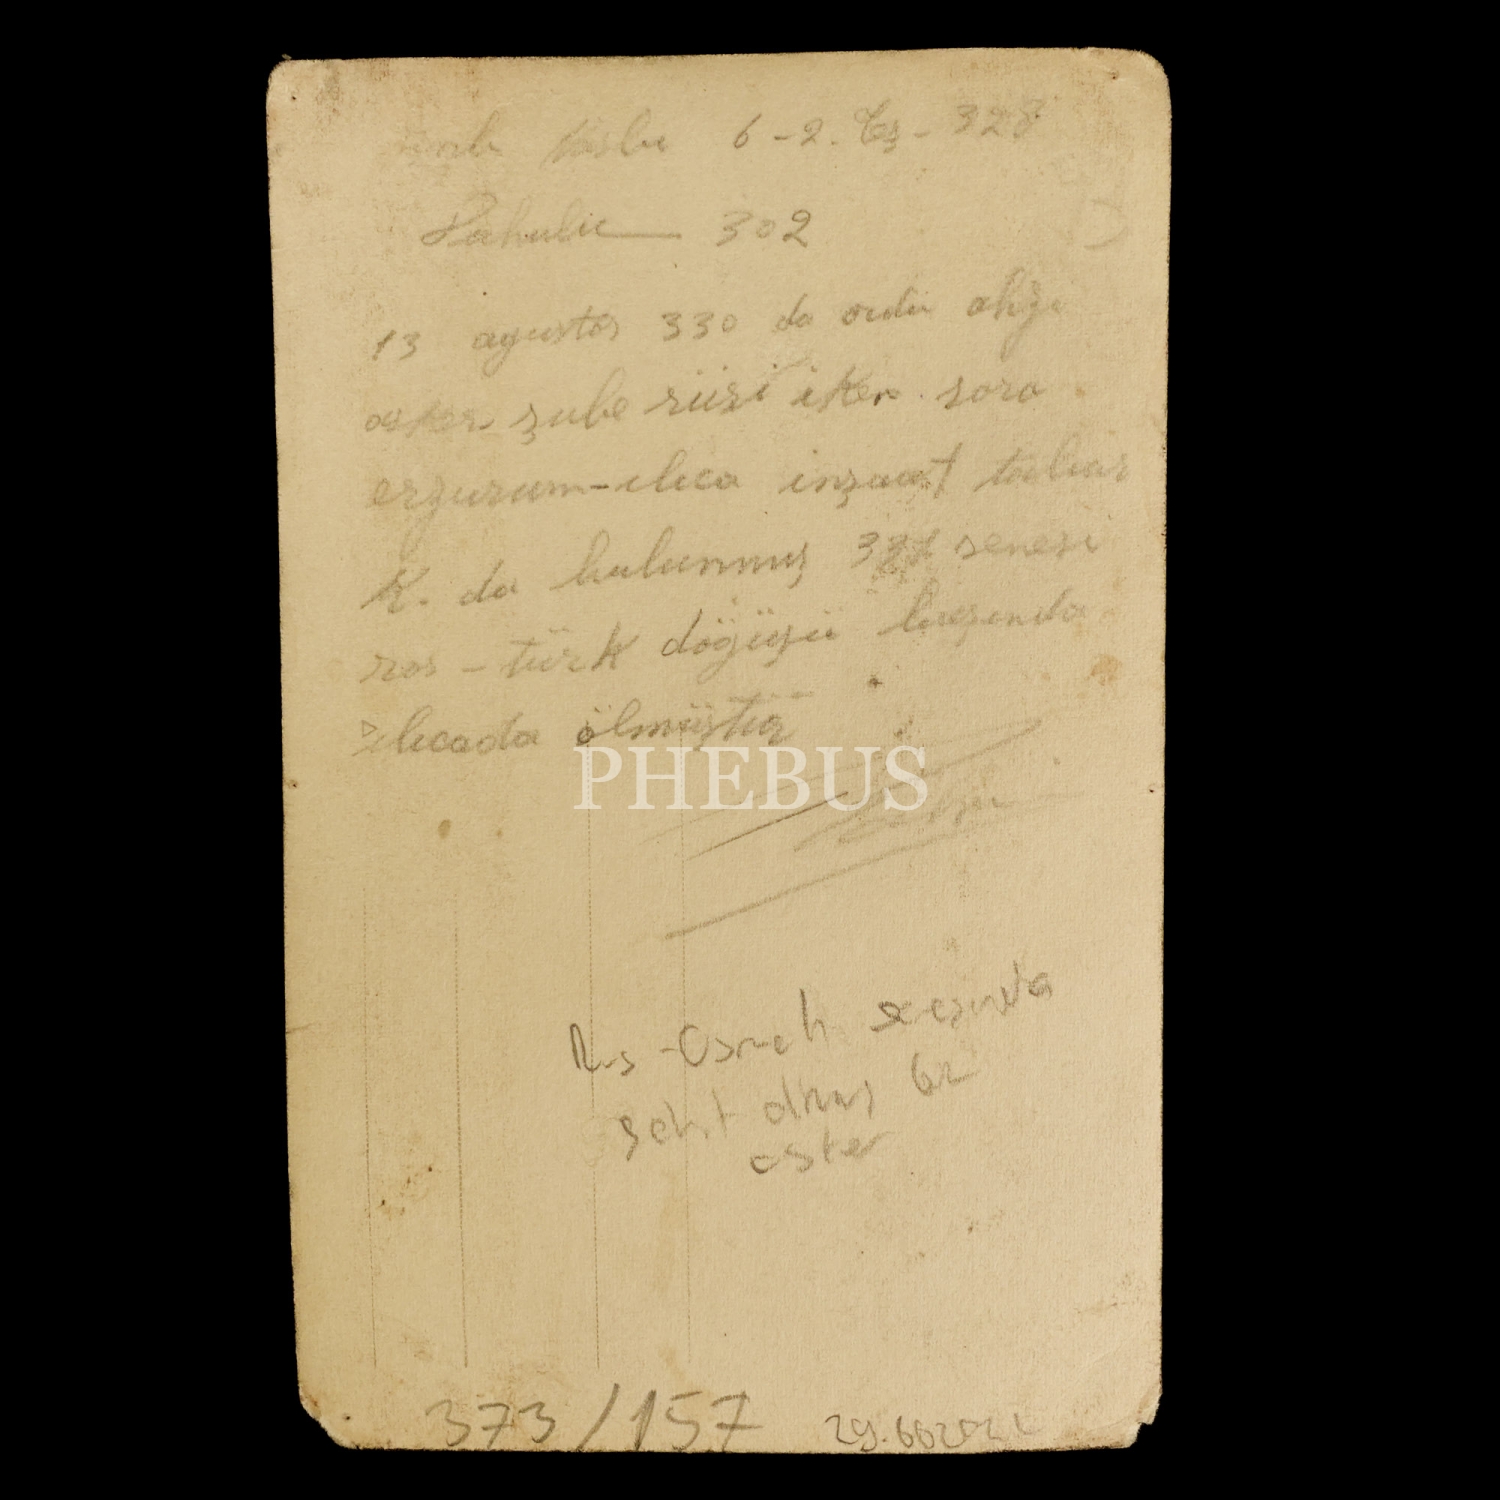 6-2. Teş- 328
302
13 agustos 330 da ordu ahzı
asker şube riisi iken sora
erzurum-ılıca inşaat tabur
K. da bulunmuş senesi
ros-türk döğüşü
ılıcada ölmüştür
PHEBUS
Rus-Osmalı
şehit olmuş bir
asker
373/157